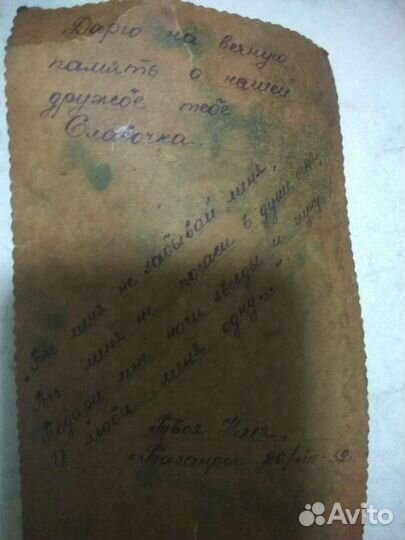 Дарю на вечную
память о нашей
дружбе тебе
Славочка.
"Без меня не забывай меня,
Без меня не погаси в душе огня,
Подари мне ночи звезды и луну
И люби меня одну..."
Твоя Неля.
г. Таганрог 26/VIII-52г.
Avito